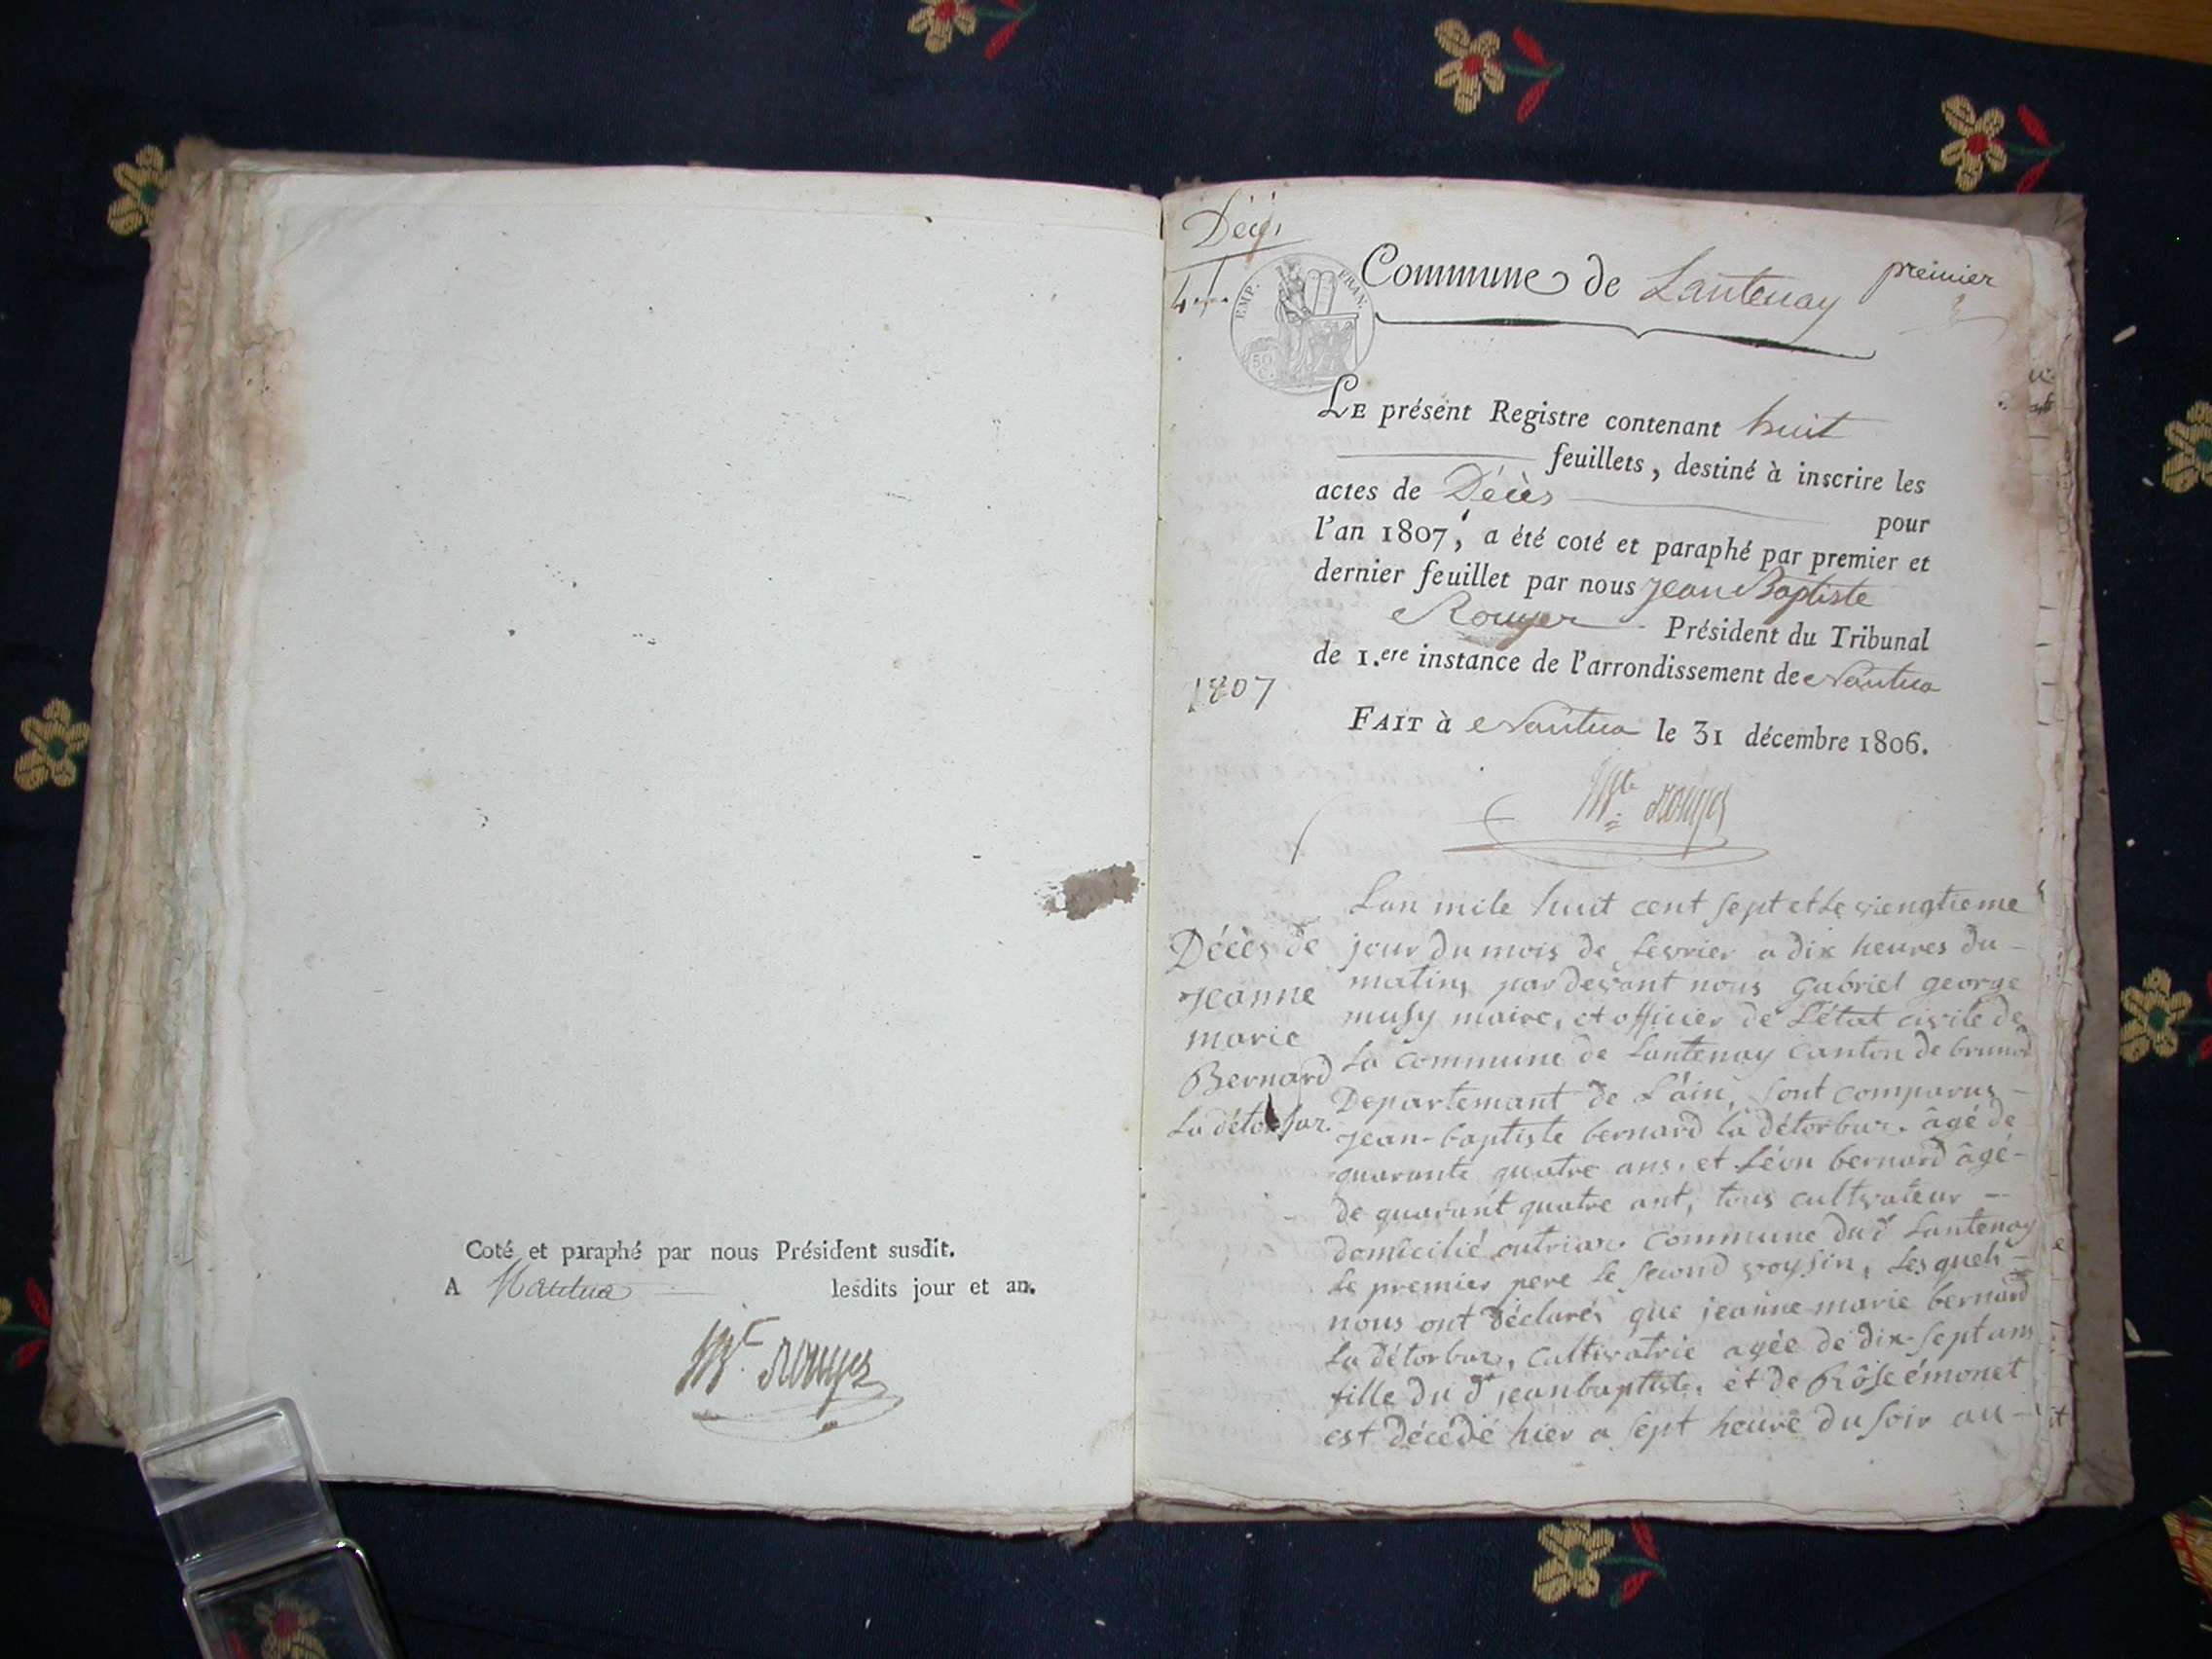 Coté et paraphé par nous Président susdit.
A Nantua lesdits jour et an.
Décès
Commune de Lantenay
premier
EMP. FRAN.
50
C.
LE présent Registre contenant huit
feuillets, destiné à inscrire les
actes de Décès pour
l'an 1807, a été coté et paraphé par premier et
dernier feuillet par nous Jean Baptiste
Rouyer Président du Tribunal
de 1.ere instance de l'arrondissement de Nantua
1807
FAIT à Nantua le 31 décembre 1806.
Décès de
jeanne
marie
Bernard
La détorbar.
Lan mile huit cent sept et Le viengtieme
jour du mois de fevrier a dix heures du
matin, par devant nous gabriel george
musy maire, et officier de L'état civile de
La commune de Lantenay canton de
Departemant de L'ain, sont comparus
jean-baptiste bernard la détorbar. âgé de
quarante quatre ans. et Léon bernard âgé
de quarant quatre ant, tous cultivateur
domicilié outriar. commune dud Lantenay
Le premier pere Le second voysin, Lesquels
nous ont déclarés que jeanne marie bernard
La détorbar, cultivatrie agée de dix-sept ans
fille du dt jean baptiste. et de Rôse émonet
est décédé hier a sept heure du soir au